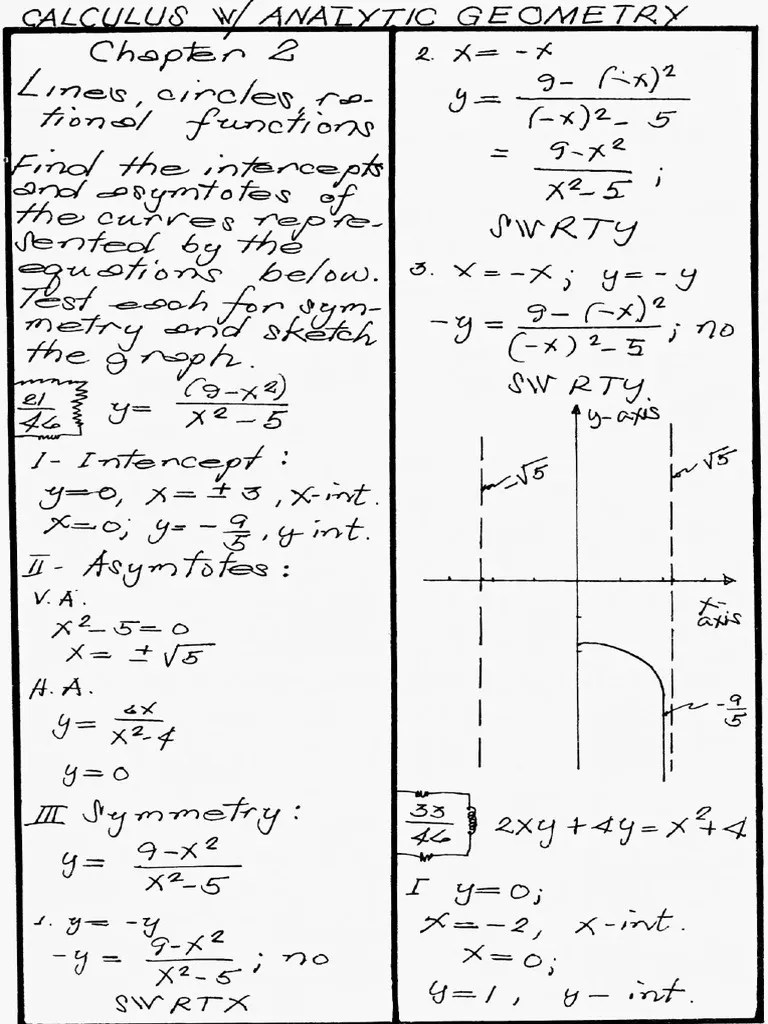 CALCULUS W/ ANALYTIC GEOMETRY
Chapter 2
Lines, circles, ra-
tional functions
Find the intercepts
and asymtotes of
the curves repre-
sented by the
equations below.
Test each for sym-
metry and sketch
the graph.
21/46 y= (9-x²)/(x²-5)
I- Intercept:
y=0, x=±3, x-int.
x=0; y=-9/5, y int.
II- Asymtotes:
V.A.
x²-5=0
x=±√5
H.A.
y= 6x/(x²-4)
y=0
III Symmetry:
y= (9-x²)/(x²-5)
1. y=-y
-y= (9-x²)/(x²-5); no
SWRTX
2. x=-x
y= (9-(-x)²)/((-x)²-5)
= (9-x²)/(x²-5);
SWRTY
3. x=-x; y=-y
-y= (9-(-x)²)/((-x)²-5); no
SWRTY.
y-axis
-√5
√5
x-
axis
-9/5
33/46 2xy+4y=x²+4
I y=0;
x=-2, x-int.
x=0;
y=1, y-int.